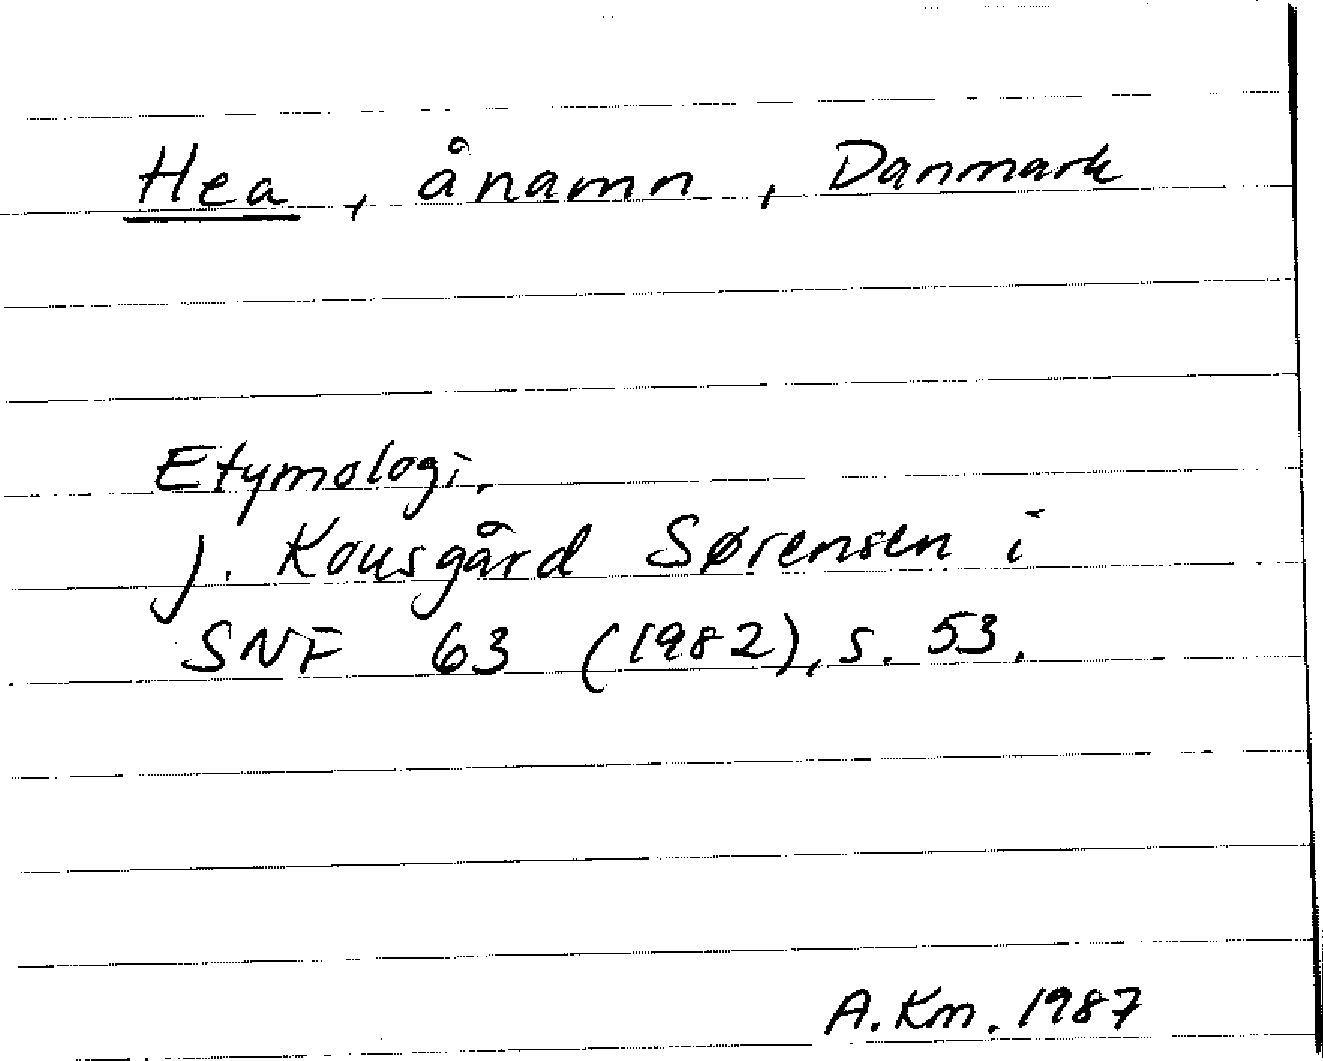 Hea, ånamn, Danmark
Etymologi.
J. Kousgård Sørensen i
SNF 63 (1982), s. 53.
A. Km. 1987